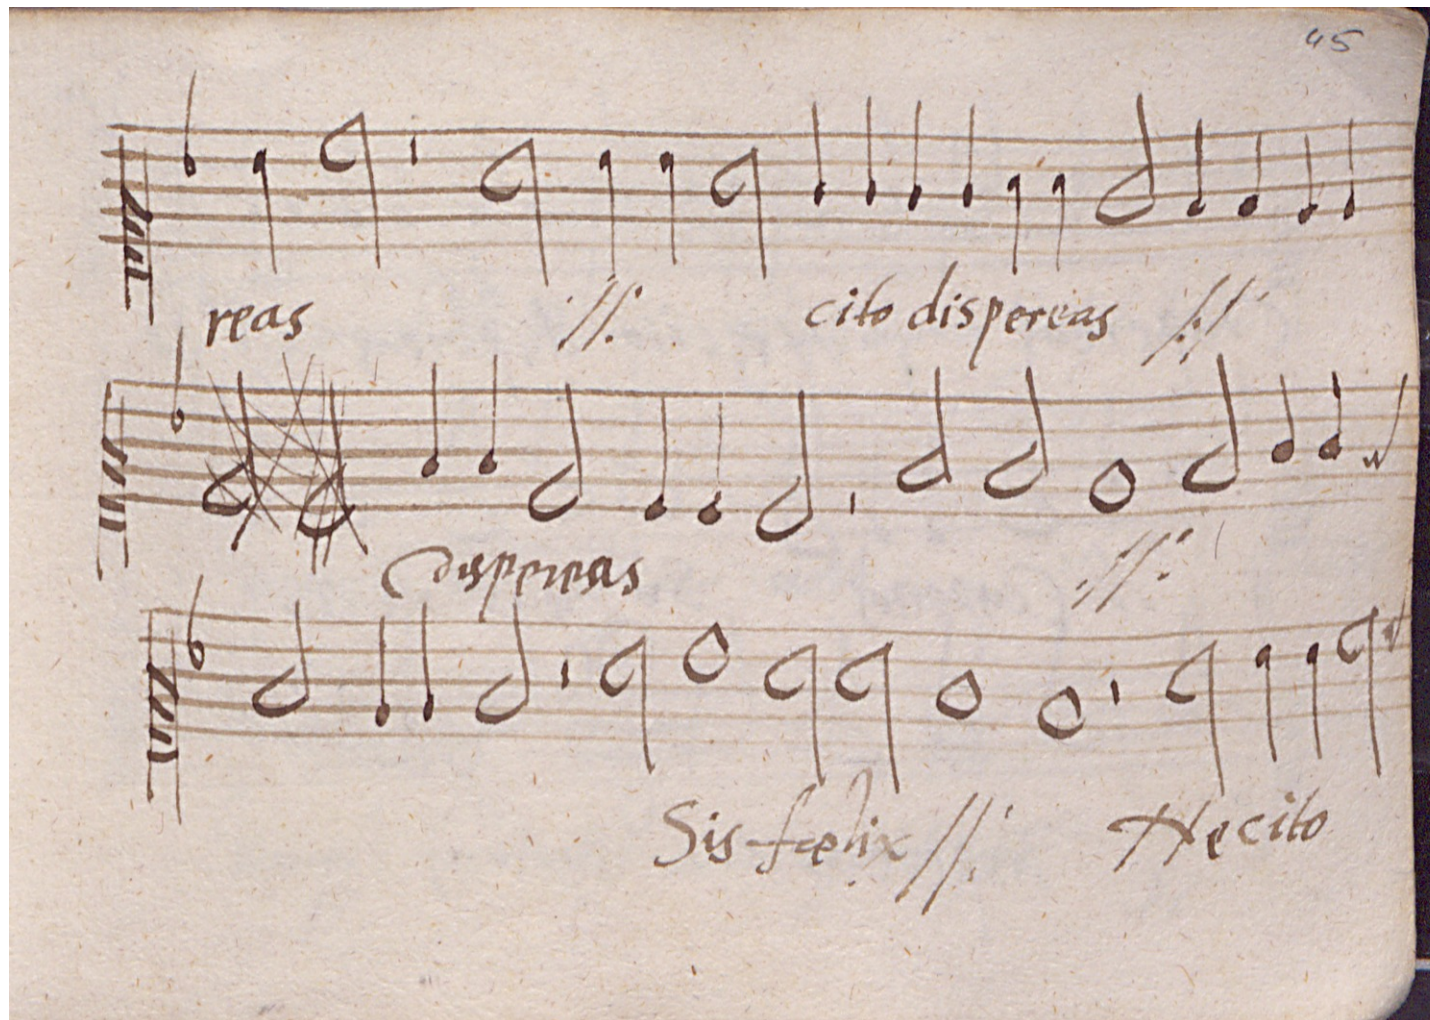 45
reas //. cito dispereas //
dispereas //.
Sis fœlix //. Ne cito